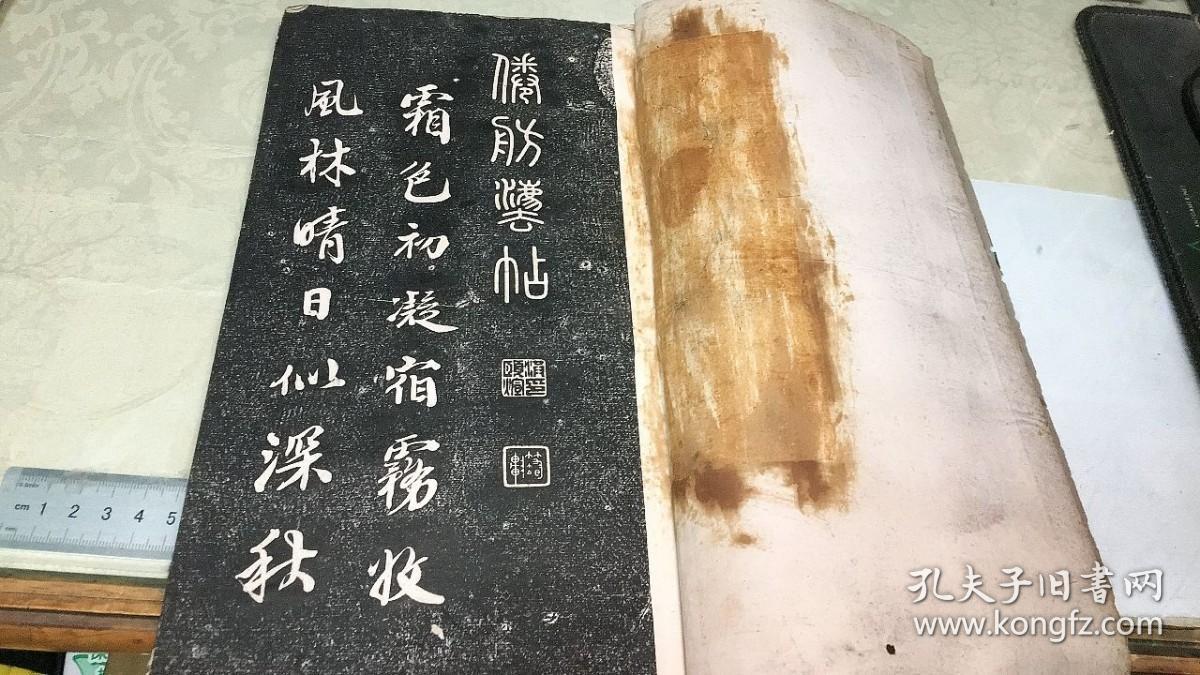 儋舫灋帖
霜色初凝宿霧收
風林晴日似深秋
cm 1 2 3 4 5
孔夫子旧书网
www.kongfz.com